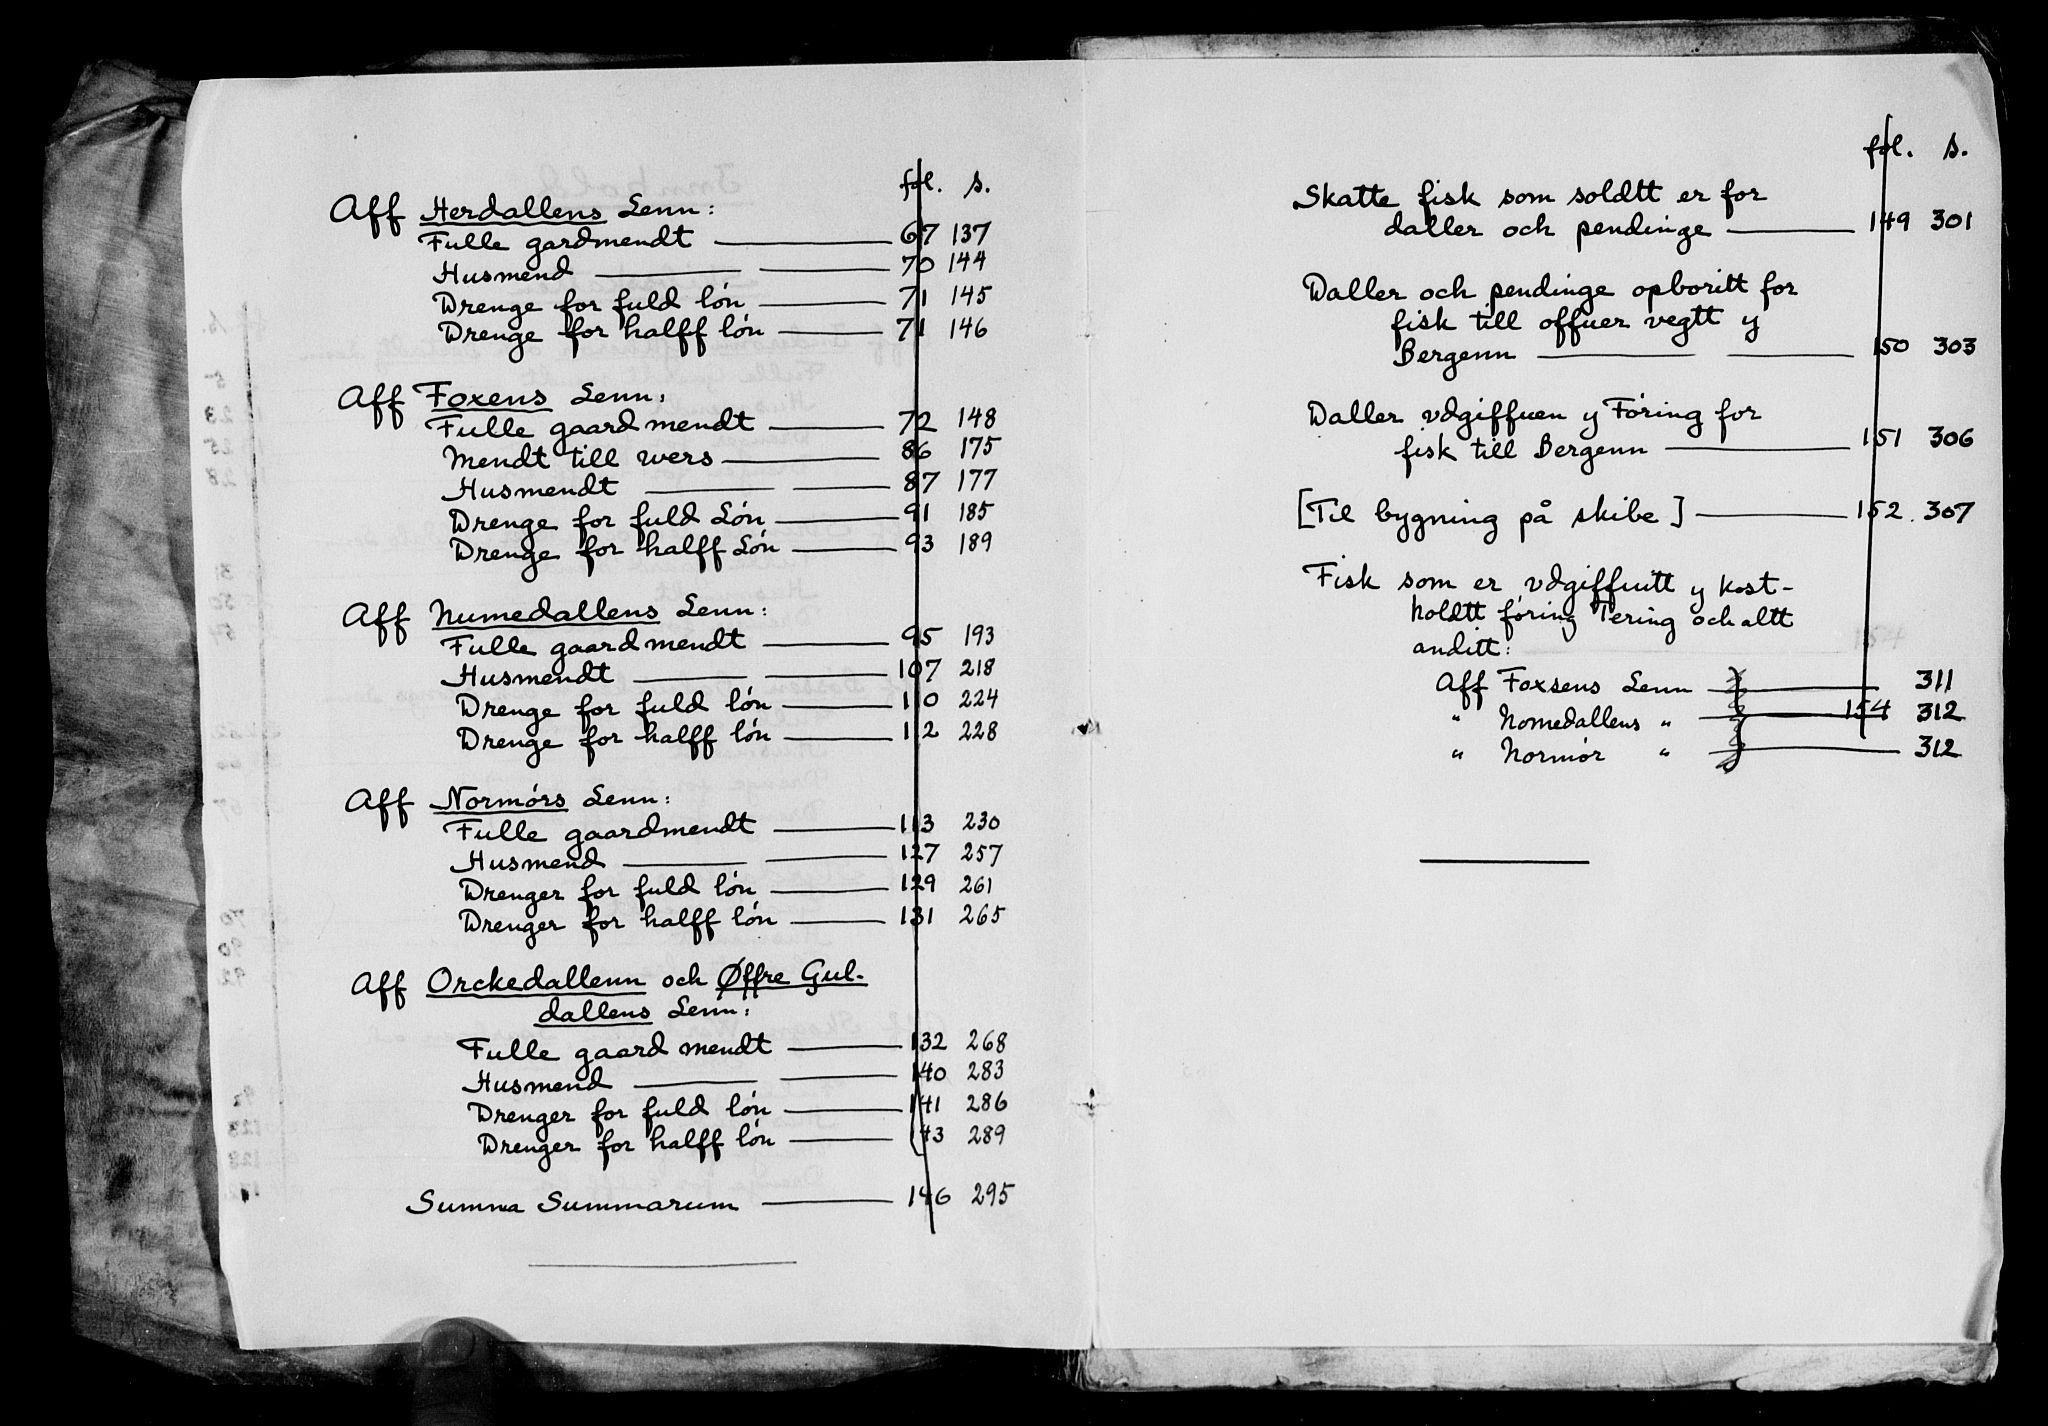 fol. s.
Aff Herdallens Lenn:
Fulle gardmendt 67 137
Husmend 70 144
Drenge for fuld løn 71 145
Drenge for halff løn 71 146
Aff Foxens Lenn:
Fulle gaardmendt 72 148
Mendt till wers 86 175
Husmendt 87 177
Drenge for fuld Løn 91 185
Drenge for halff Løn 93 189
Aff Numedallens Lenn:
Fulle gaardmendt 95 193
Husmendt 107 218
Drenge for fuld løn 110 224
Drenge for halff løn 112 228
Aff Normørs Lenn:
Fulle gaardmendt 113 230
Husmend 127 257
Drenger for fuld løn 129 261
Drenger for halff løn 131 265
Aff Orckedallenn och Øffre Gul-
dallens Lenn:
Fulle gaardmendt 132 268
Husmend 140 283
Drenger for fuld løn 141 286
Drenger for halff løn 143 289
Summa Summarum 146 295
fol. s.
Skatte fisk som soldtt er for
daller och pendinge 149 301
Daller och pendinge opboritt for
fisk till offuer vegtt y
Bergenn 150 303
Daller vdgiffuen y Føring for
fisk till Bergenn 151 306
[Til bygning på skibe] 152. 307
Fisk som er vdgiffuitt y kost-
holdtt føring Tering och altt
anditt: 154
Aff Foxsens Lenn 311
" Nomedallens " 154 312
" Normør " 312